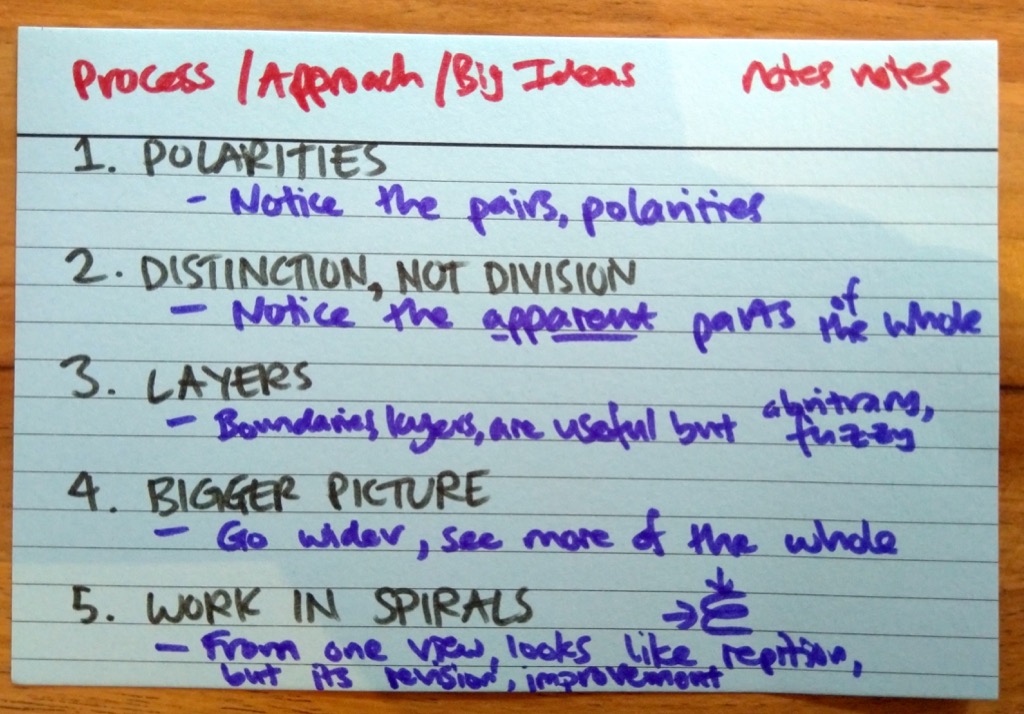 Process / Approach / Big Ideas notes notes
1. POLARITIES
- Notice the pairs, polarities
2. DISTINCTION, NOT DIVISION
- Notice the apparent parts of the whole
3. LAYERS
- Boundaries, layers, are useful but abritrary, fuzzy
4. BIGGER PICTURE
- Go wider, see more of the whole
5. WORK IN SPIRALS
- From one view, looks like repition,
but its revision, improvement